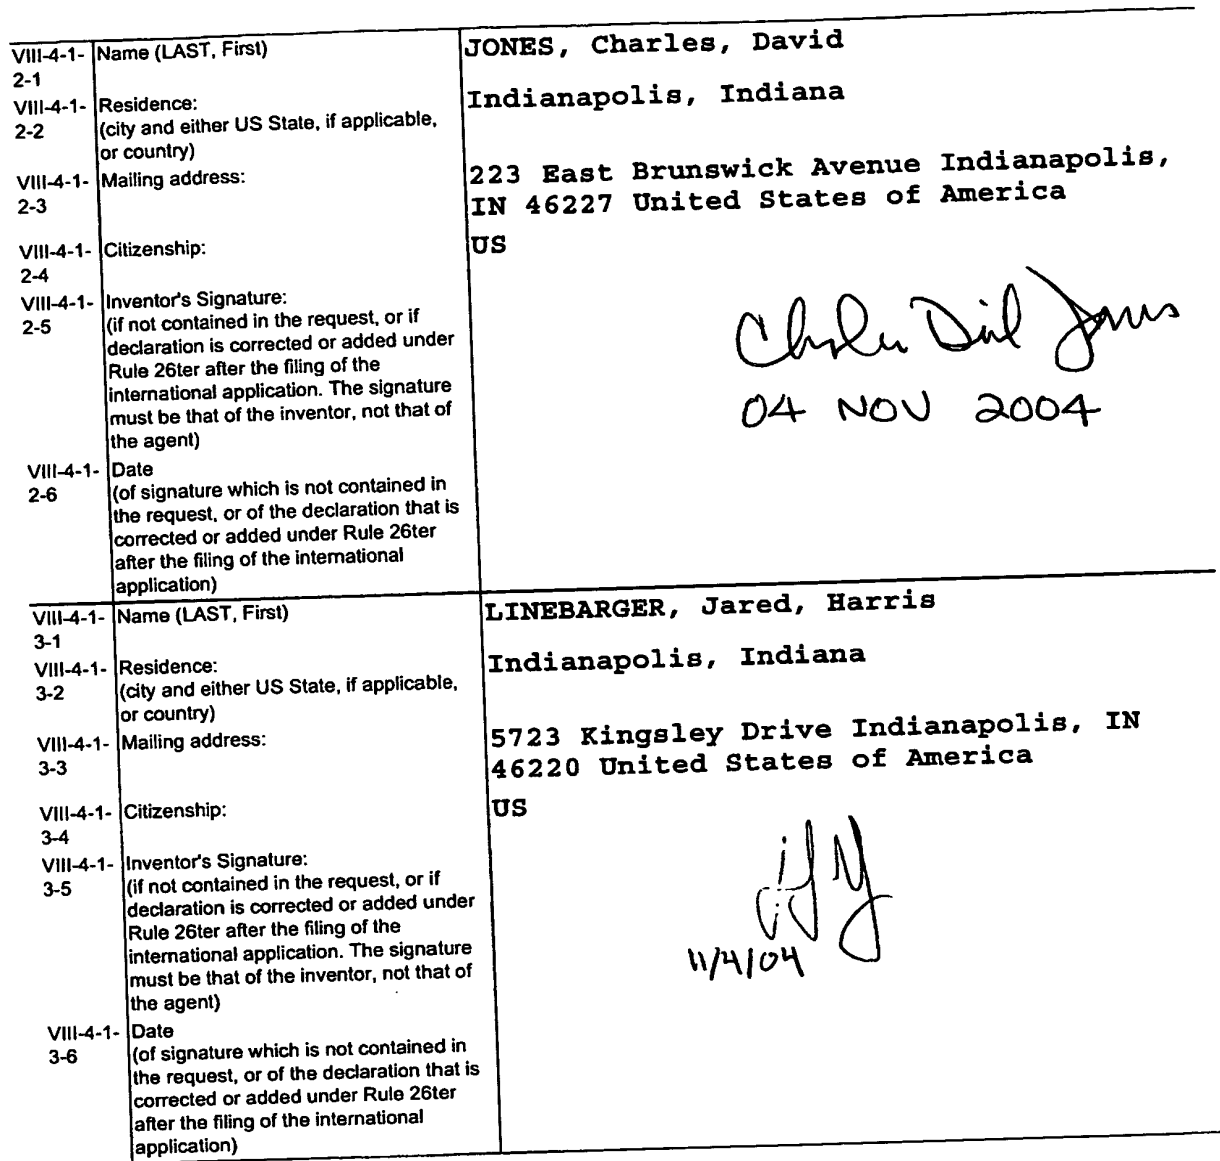 VIII-4-1- Name (LAST, First) JONES, Charles, David
2-1
VIII-4-1- Residence: Indianapolis, Indiana
2-2 (city and either US State, if applicable,
or country)
VIII-4-1- Mailing address: 223 East Brunswick Avenue Indianapolis,
2-3 IN 46227 United States of America
VIII-4-1- Citizenship: US
2-4
VIII-4-1- Inventor's Signature:
2-5 (if not contained in the request, or if
declaration is corrected or added under
Rule 26ter after the filing of the
international application. The signature
must be that of the inventor, not that of
the agent)
04 NOV 2004
VIII-4-1- Date
2-6 (of signature which is not contained in
the request, or of the declaration that is
corrected or added under Rule 26ter
after the filing of the international
application)
VIII-4-1- Name (LAST, First) LINEBARGER, Jared, Harris
3-1
VIII-4-1- Residence: Indianapolis, Indiana
3-2 (city and either US State, if applicable,
or country)
VIII-4-1- Mailing address: 5723 Kingsley Drive Indianapolis, IN
3-3 46220 United States of America
VIII-4-1- Citizenship: US
3-4
VIII-4-1- Inventor's Signature:
3-5 (if not contained in the request, or if
declaration is corrected or added under
Rule 26ter after the filing of the
international application. The signature
must be that of the inventor, not that of
the agent)
11/4/04
VIII-4-1- Date
3-6 (of signature which is not contained in
the request, or of the declaration that is
corrected or added under Rule 26ter
after the filing of the international
application)